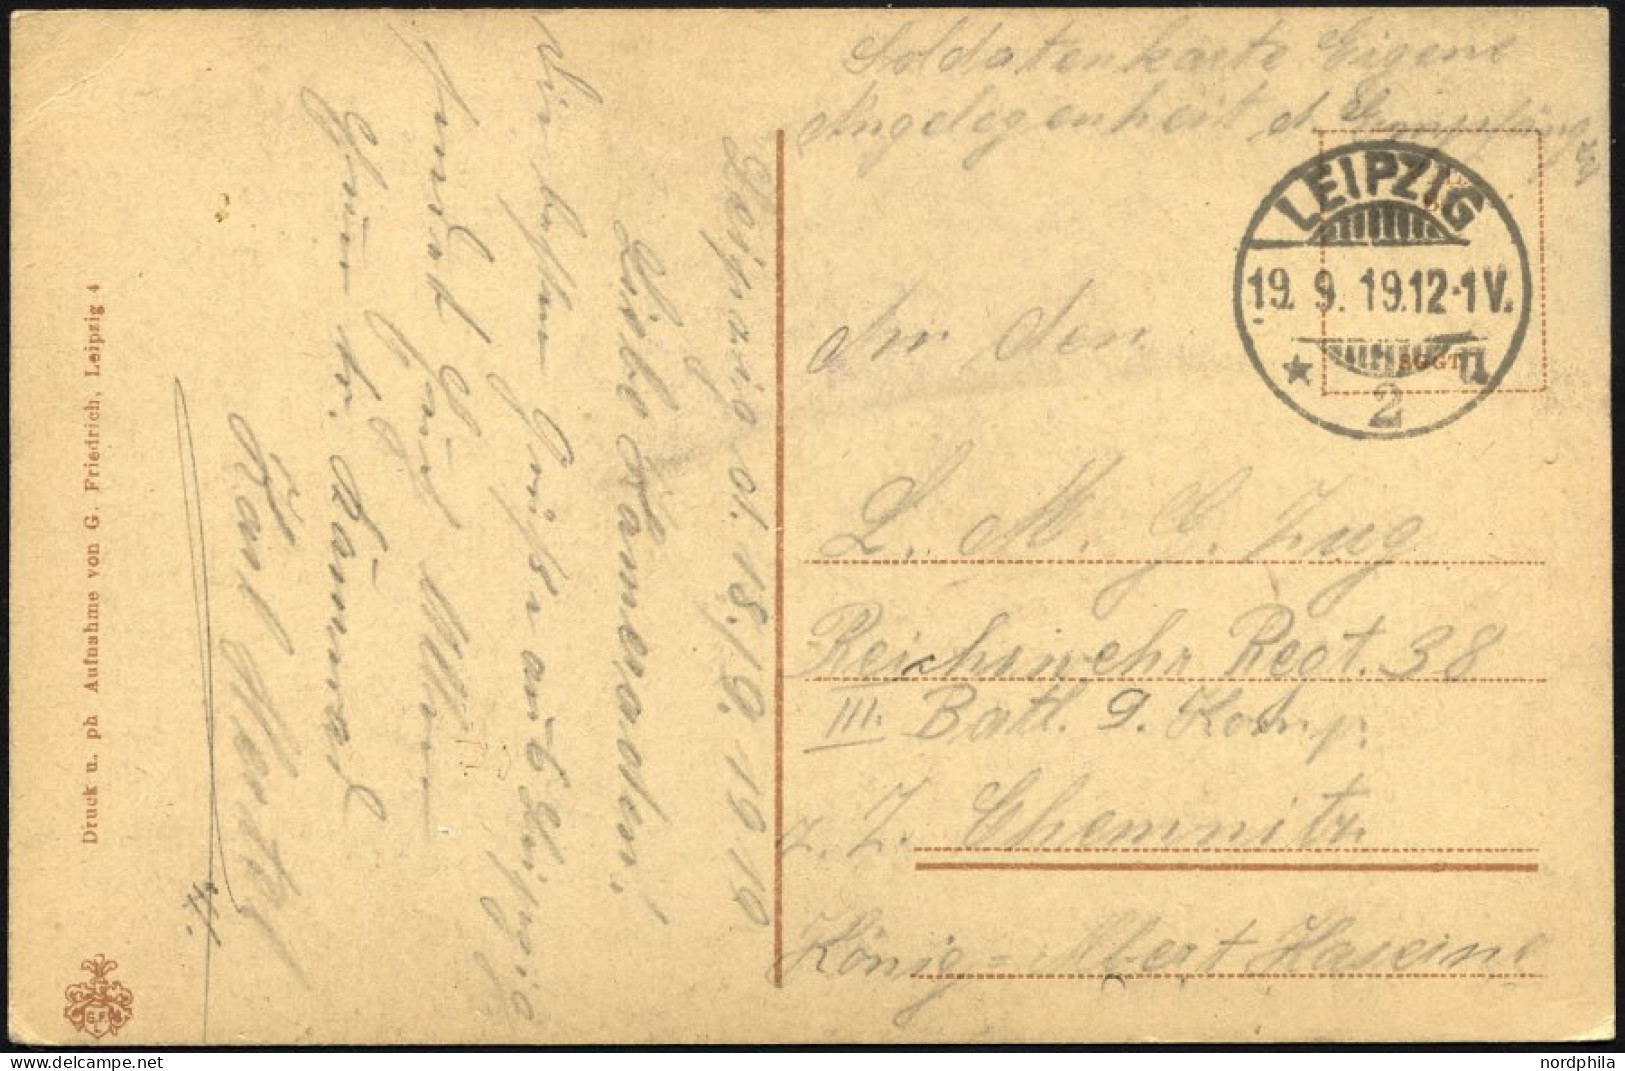 Soldatenkarte Eigene
Angelegenheit d. Empfängers
LEIPZIG
19. 9. 19.12-1V.
* 2 u
SGGT
An den
L. M. G. Zug
Reichswehr Regt. 38
III. Battl. 9. Komp.
z. Z. Chemnitz
König-Albert Kaserne
Leipzig d. 18./9. 1919
Liebe Kameraden!
Die besten Grüße aus Leipzig
sendet Euch Allen
Karl
Druck u. ph Aufnahme von G. Friedrich, Leipzig 4
G.F.
L
nordphila